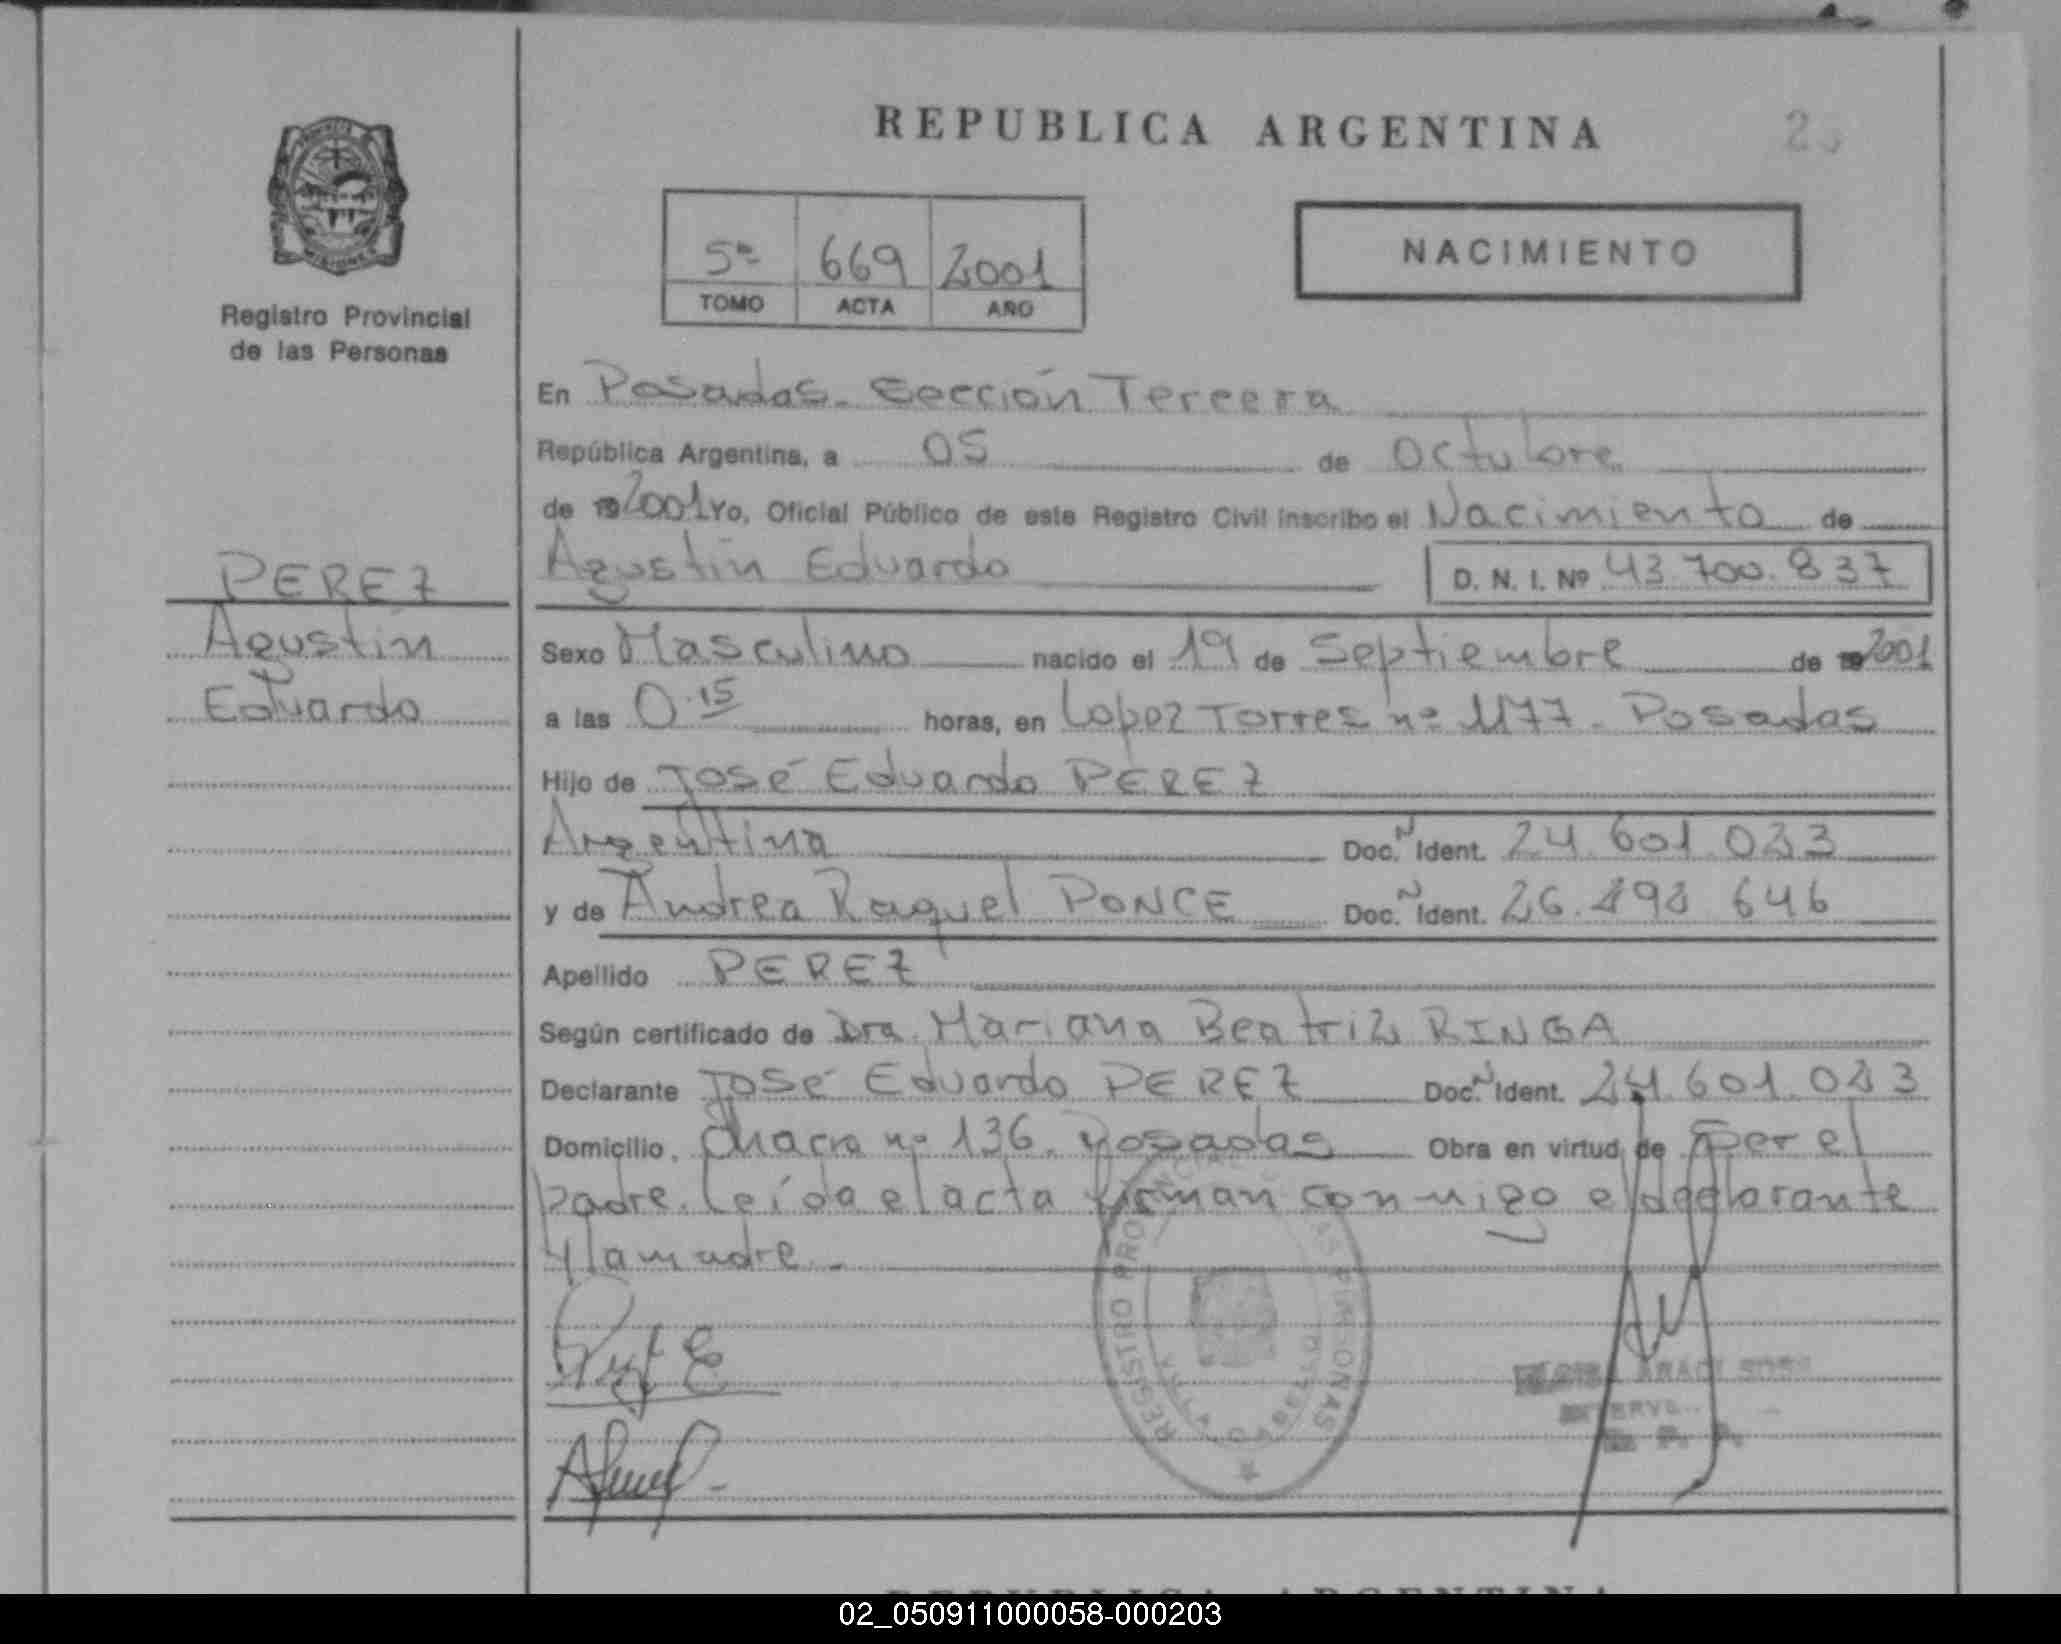 REPUBLICA ARGENTINA
PROVINCIA
MISIONES
Registro Provincial
de las Personas
5º 669 2001
TOMO ACTA AÑO
NACIMIENTO
En Posadas - Sección Tercera
República Argentina, a 05 de Octubre
de 19 2001 Yo, Oficial Público de este Registro Civil inscribo el Nacimiento de
PEREZ
Agustín Eduardo
D. N. I. Nº 43.700.837
Agustín
Sexo Masculino nacido el 19 de Septiembre de 19 2001
Eduardo
a las 0.15 horas, en Lopez Torres nº 1177 - Posadas
Hijo de José Eduardo PEREZ
Argentina Doc. N Ident. 24.601.033
y de Andrea Raquel PONCE Doc. N Ident. 26. 646
Apellido PEREZ
Según certificado de Dra. Mariana Beatriz RINGA
Declarante José Eduardo PEREZ Doc. N Ident. 24.601.033
Domicilio. Chacra nº 136. Posadas Obra en virtud de Ser el
padre. Leída el acta firman conmigo el declarante
y la madre.-
REGISTRO PROVINCIAL PERSONAS
REPUBLICA ARGENTINA
02_050911000058-000203